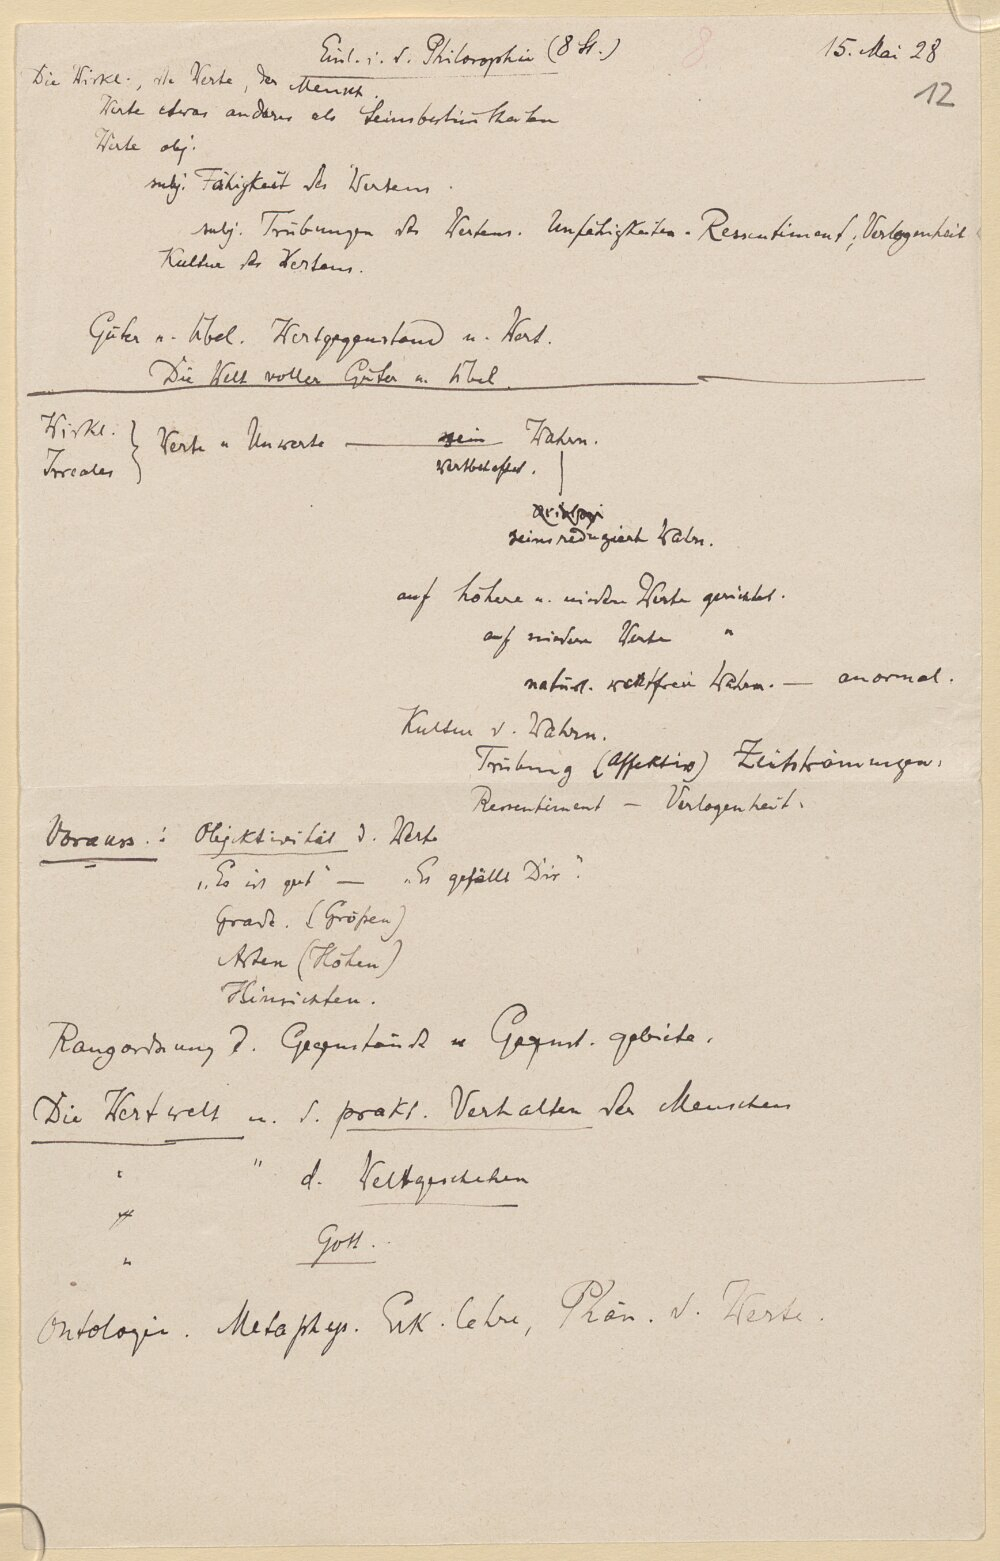 Einl. i. d. Philosophie (8 St.) 8 15. Mai 28
12
Die Wirkl., die Werte, der Mensch.
Werte etwas anderes als Seinsbestimtheiten
Werte obj.
subj. Fähigkeit des Wertens.
subj. Trübungen des Wertens. Unfähigkeiten - Ressentiment, Verlogenheit
Kultur des Wertens.
Güter u. Übel. Wertgegenstand u. Wert.
Die Welt voller Güter u. Übel.
Wirkl. } Werte u Unwerte — Wahrn.
Irreales wertbehaftet.
seinsreduzierte Wahrn.
auf höhere u. niedere Werte gerichtet.
auf niedere Werte "
natürl. wertfreie Wahrn. — anormal.
Kultur d. Wahrn.
Trübung (Affektive) Zeitströmungen.
Ressentiment — Verlogenheit.
Vorauss.: Objektivität d. Werte
„Es ist gut" — „Es gefällt Dir".
Grade. (Größen)
Arten (Höhen)
Hinsichten.
Rangordnung d. Gegenstände u Gegenst. gebiete.
Die Wertwelt u. d. prakt. Verhalten der Menschen
" " d. Weltgeschehen
" Gott.
Ontologie. Metaphys. Erk. lehre, Phän. d. Werte.